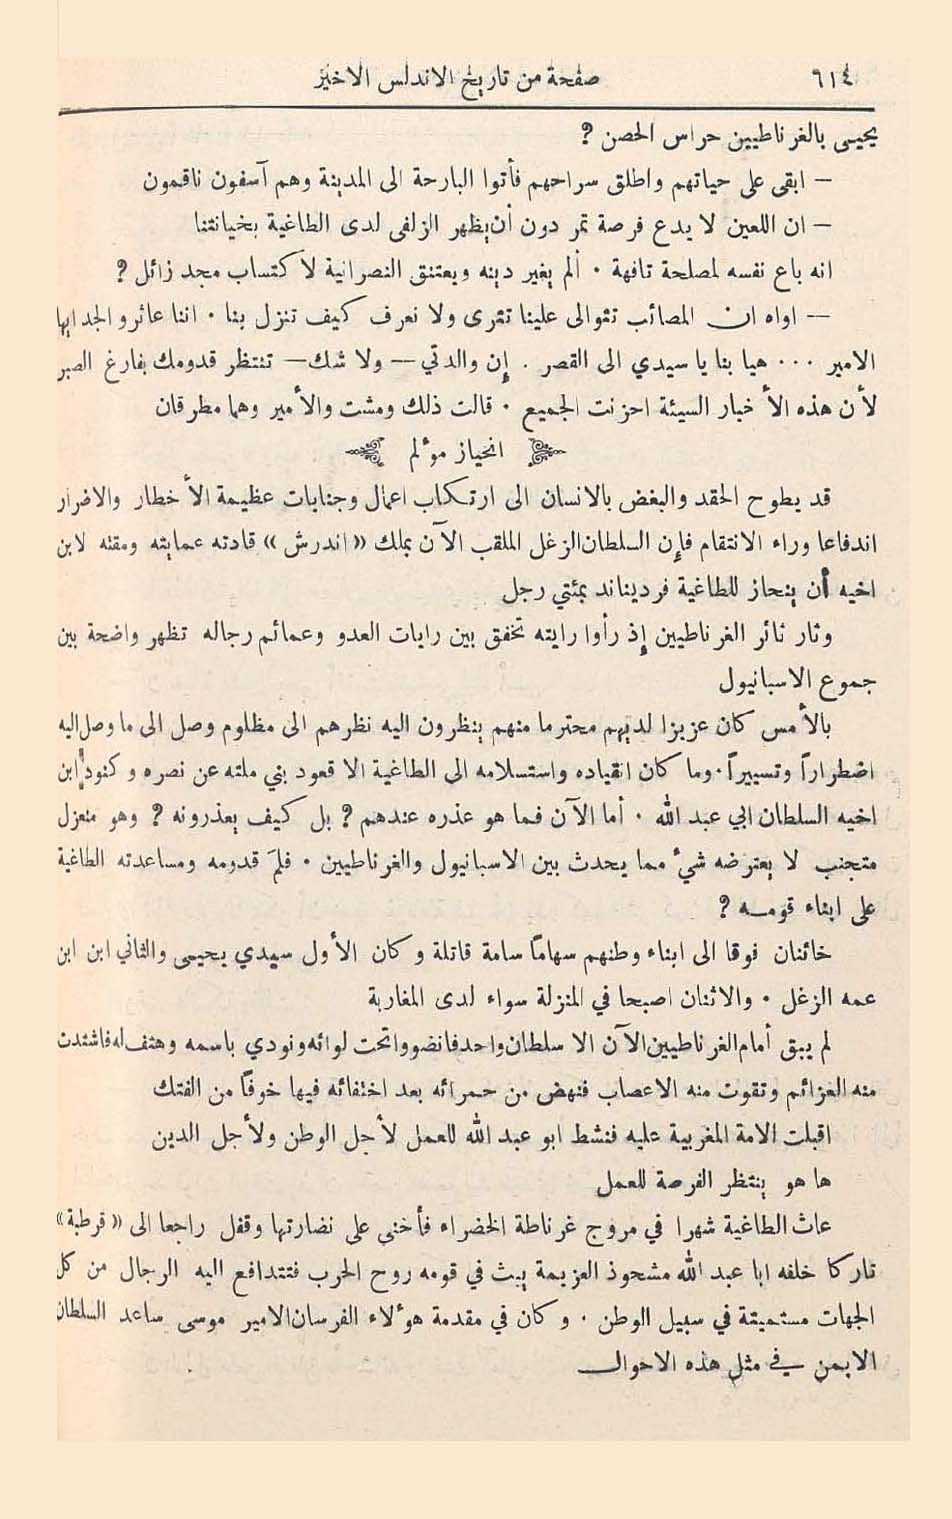 ٦١٤ صفحة من تاريخ الاندلس الاخير
يحيى بالغرناطيين حراس الحصن ؟
– ابقى على حياتهم واطلق سراحهم فأتوا البارحة الى المدينة وهم آسفون ناقمون
– ان اللعين لا يدع فرصة تمر دون أن يظهر الزلفى لدى الطاغية بخيانتنا
انه باع نفسه لمصلحة تافهة ٠ ألم يغير دينه ويعتنق النصرانية لاكتساب مجد زائل ؟
– اواه ان المصائب تتوالى علينا تترى ولا نعرف كيف تنزل بنا ٠ اننا عاثرو الجد ايها
الامير ٠٠٠ هيا بنا يا سيدي الى القصر . إن والدتي – ولا شك – تنتظر قدومك بفارغ الصبر
لأن هذه الأخبار السيئة احزنت الجميع ٠ قالت ذلك ومشت والأمير وهما مطرقان
انحياز موٴلم
قد يطوح الحقد والبغض بالانسان الى ارتكاب اعمال وجنايات عظيمة الأخطار والاضرار
اندفاعا وراء الانتقام فإن السلطان الزغل الملقب الآن بملك « اندرش » قادته عمايته ومقته لابن
اخيه أن ينحاز للطاغية فرديناند بمئتي رجل
وثار ثائر الغرناطيين إذ رأوا رايته تخفق بين رايات العدو وعمائم رجاله تظهر واضحة بين
جموع الاسبانيول
بالأمس كان عزيزا لديهم محترما منهم ينظرون اليه نظرهم الى مظلوم وصل الى ما وصل اليه
اضطراراً وتسييراً ٠ وما كان انقياده واستسلامه الى الطاغية الا قعود بني ملته عن نصره وكنود ابن
اخيه السلطان ابي عبد الله ٠ أما الآن فما هو عذره عندهم ؟ بل كيف يعذرونه ؟ وهو منعزل
متجنب لا يعترضه شيء مما يحدث بين الاسبانيول والغرناطيين ٠ فلمَ قدومه ومساعدته الطاغية
على ابناء قومه ؟
خائنان فوقا الى ابناء وطنهم سهاماً سامة قاتلة وكان الأول سيدي يحيى والثاني ابن ابن
عمه الزغل ٠ والاثنان اصبحا في المنزلة سواء لدى المغاربة
لم يبق أمام الغرناطيين الآن الا سلطان واحد فانضووا تحت لوائه ونودي باسمه وهتف له فاشتدت
منه العزائم وتقوت منه الاعصاب فنهض من حمرائه بعد اختفائه فيها خوفاً من الفتك
اقبلت الامة المغربية عليه فنشط ابو عبد الله للعمل لأجل الوطن ولأجل الدين
ها هو ينتظر الفرصة للعمل
عاث الطاغية شهرا في مروج غرناطة الخضراء فأخنى على نضارتها وقفل راجعا الى « قرطبة »
تاركا خلفه ابا عبد الله مشحوذ العزيمة يبث في قومه روح الحرب فتتدافع اليه الرجال من كل
الجهات مستميتة في سبيل الوطن ٠ وكان في مقدمة هوٴلاء الفرسان الامير موسى ساعد السلطان
الايمن في مثل هذه الاحوال